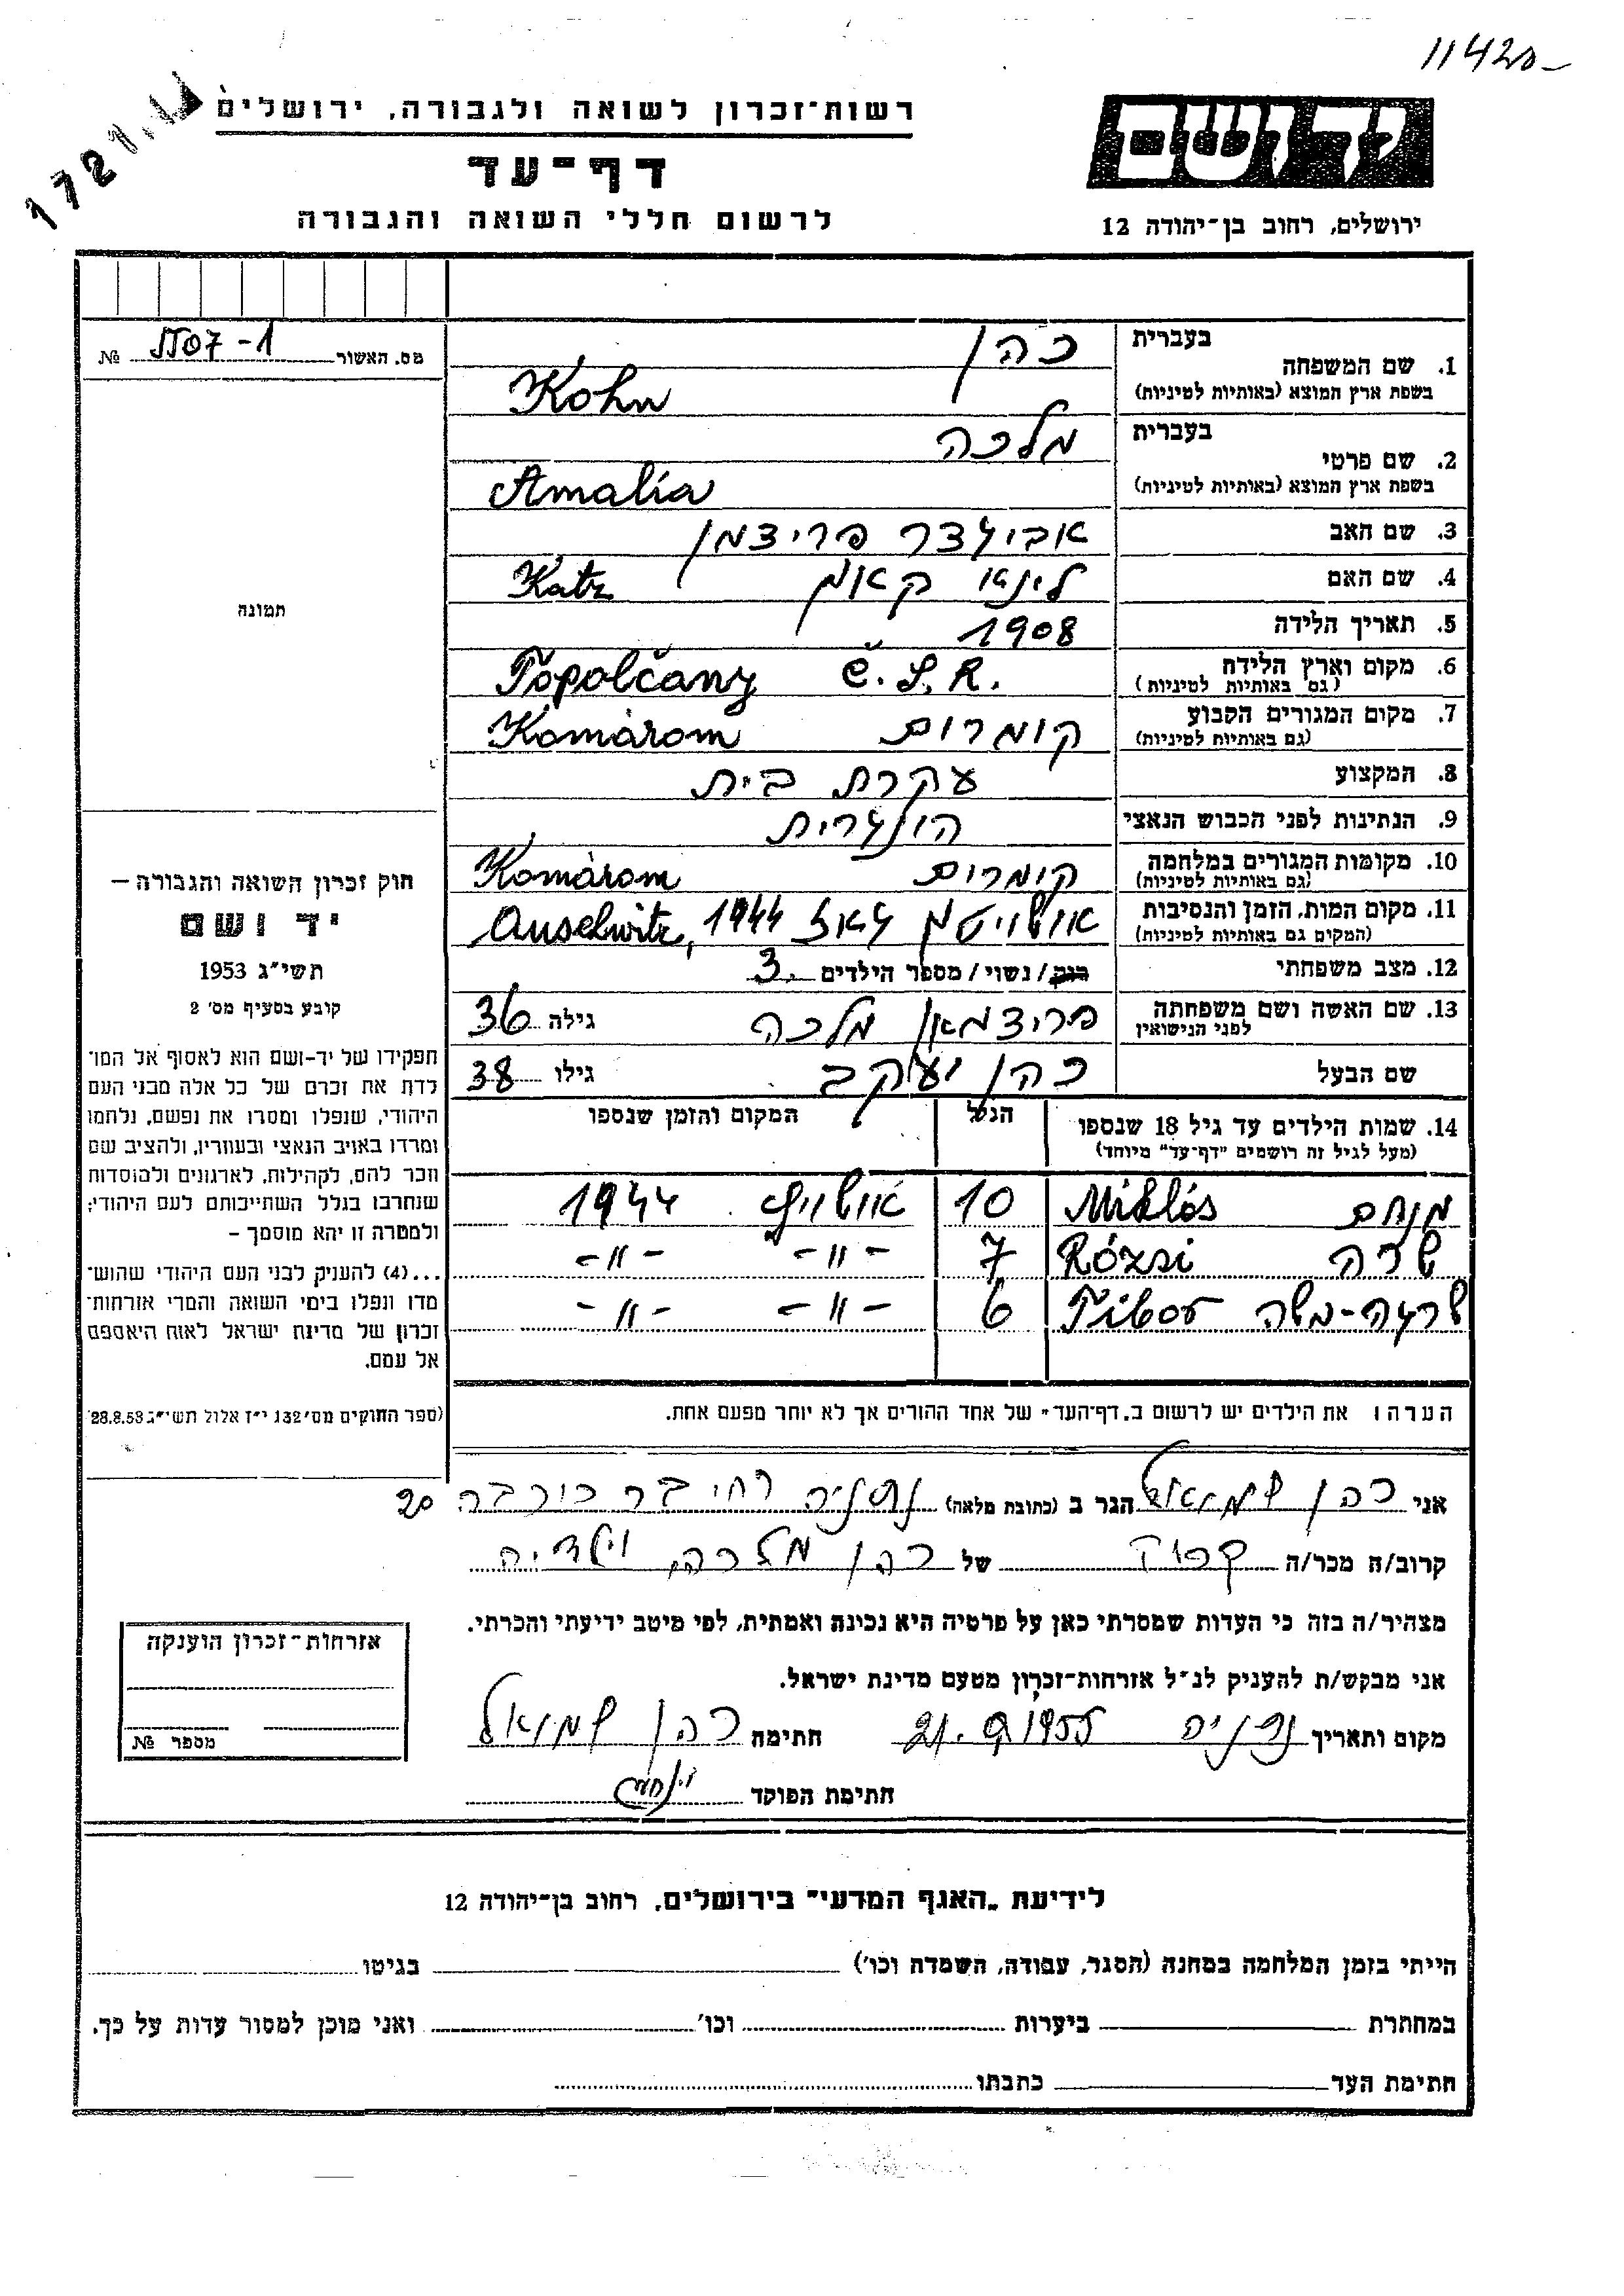 11420-
רשות־זכרון לשואה ולגבורה, ירושלים
דף־עד
לרשום חללי השואה והגבורה
יד ושם
ירושלים, רחוב בן־יהודה 12
מס. האשור № 5507-1
בעברית כהן
1. שם המשפחה
בשפת ארץ המוצא (באותיות לטיניות) Kohn
בעברית מלכה
2. שם פרטי
בשפת ארץ המוצא (באותיות לטיניות) Amalia
3. שם האב אביעזר פריצמן
4. שם האם לינא קאץ Katz
5. תאריך הלידה 1908
6. מקום וארץ הלידה Topolčany Č.S.R.
(גם באותיות לטיניות)
7. מקום המגורים הקבוע קומרום Komárom
(גם באותיות לטיניות)
8. המקצוע עקרת בית
9. הנתינות לפני הכבוש הנאצי הונגרית
10. מקומות המגורים במלחמה קומרום Komárom
(גם באותיות לטיניות)
11. מקום המות, הזמן והנסיבות אושוויטץ גאז 1944 Auschwitz,
(המקום גם באותיות לטיניות)
12. מצב משפחתי רווק/נשוי/מספר הילדים 3.
13. שם האשה ושם משפחתה פריצמאן מלכה גילה 36
לפני הנישואין
שם הבעל כהן יעקב גילו 38
14. שמות הילדים עד גיל 18 שנספו הגיל המקום והזמן שנספו
(מעל לגיל זה רושמים "דף־עד" מיוחד)
מנחם Miklós 10 אושוויץ 1944
שרה Rózsi 7 -"- -"-
שרגא-משה Tibor 6 -"- -"-
הערה: את הילדים יש לרשום ב„דף־העד" של אחד ההורים אך לא יותר מפעם אחת.
תמונה
חוק זכרון השואה והגבורה —
יד ושם
תשי"ג 1953
קובע בסעיף מס' 2
תפקידו של יד-ושם הוא לאסוף אל המו־
לדת את זכרם של כל אלה מבני העם
היהודי, שנפלו ומסרו את נפשם, נלחמו
ומרדו באויב הנאצי ובעוזריו, ולהציב שם
וזכר להם, לקהילות, לארגונים ולמוסדות
שנחרבו בגלל השתייכותם לעם היהודי;
ולמטרה זו יהא מוסמך –
...(4) להעניק לבני העם היהודי שהוש־
מדו ונפלו בימי השואה והמרי אזרחות־
זכרון של מדינת ישראל לאות היאספם
אל עמם.
(ספר החוקים מס' 132 י"ז אלול תשי"ג 28.8.53)
אני כהן שמואל הגר ב (כתובת מלאה) נתניה רח' בר כוכבה 20
קרוב/ה מכר/ה קרוב של כהן מלכה, וילדיה
מצהיר/ה בזה כי העדות שמסרתי כאן על פרטיה היא נכונה ואמתית, לפי מיטב ידיעתי והכרתי.
אני מבקש/ת להעניק לנ"ל אזרחות־זכרון מטעם מדינת ישראל.
מקום ותאריך נתניה 21.9.1955 חתימה כהן שמואל
חתימת הפוקד
אזרחות־זכרון הוענקה
מספר №
לידיעת „האגף המדעי" בירושלים, רחוב בן־יהודה 12
הייתי בזמן המלחמה במחנה (הסגר, עבודה, השמדה וכו') בגיטו
במחתרת ביערות וכו' ואני מוכן למסור עדות על כך.
חתימת העד כתבתו